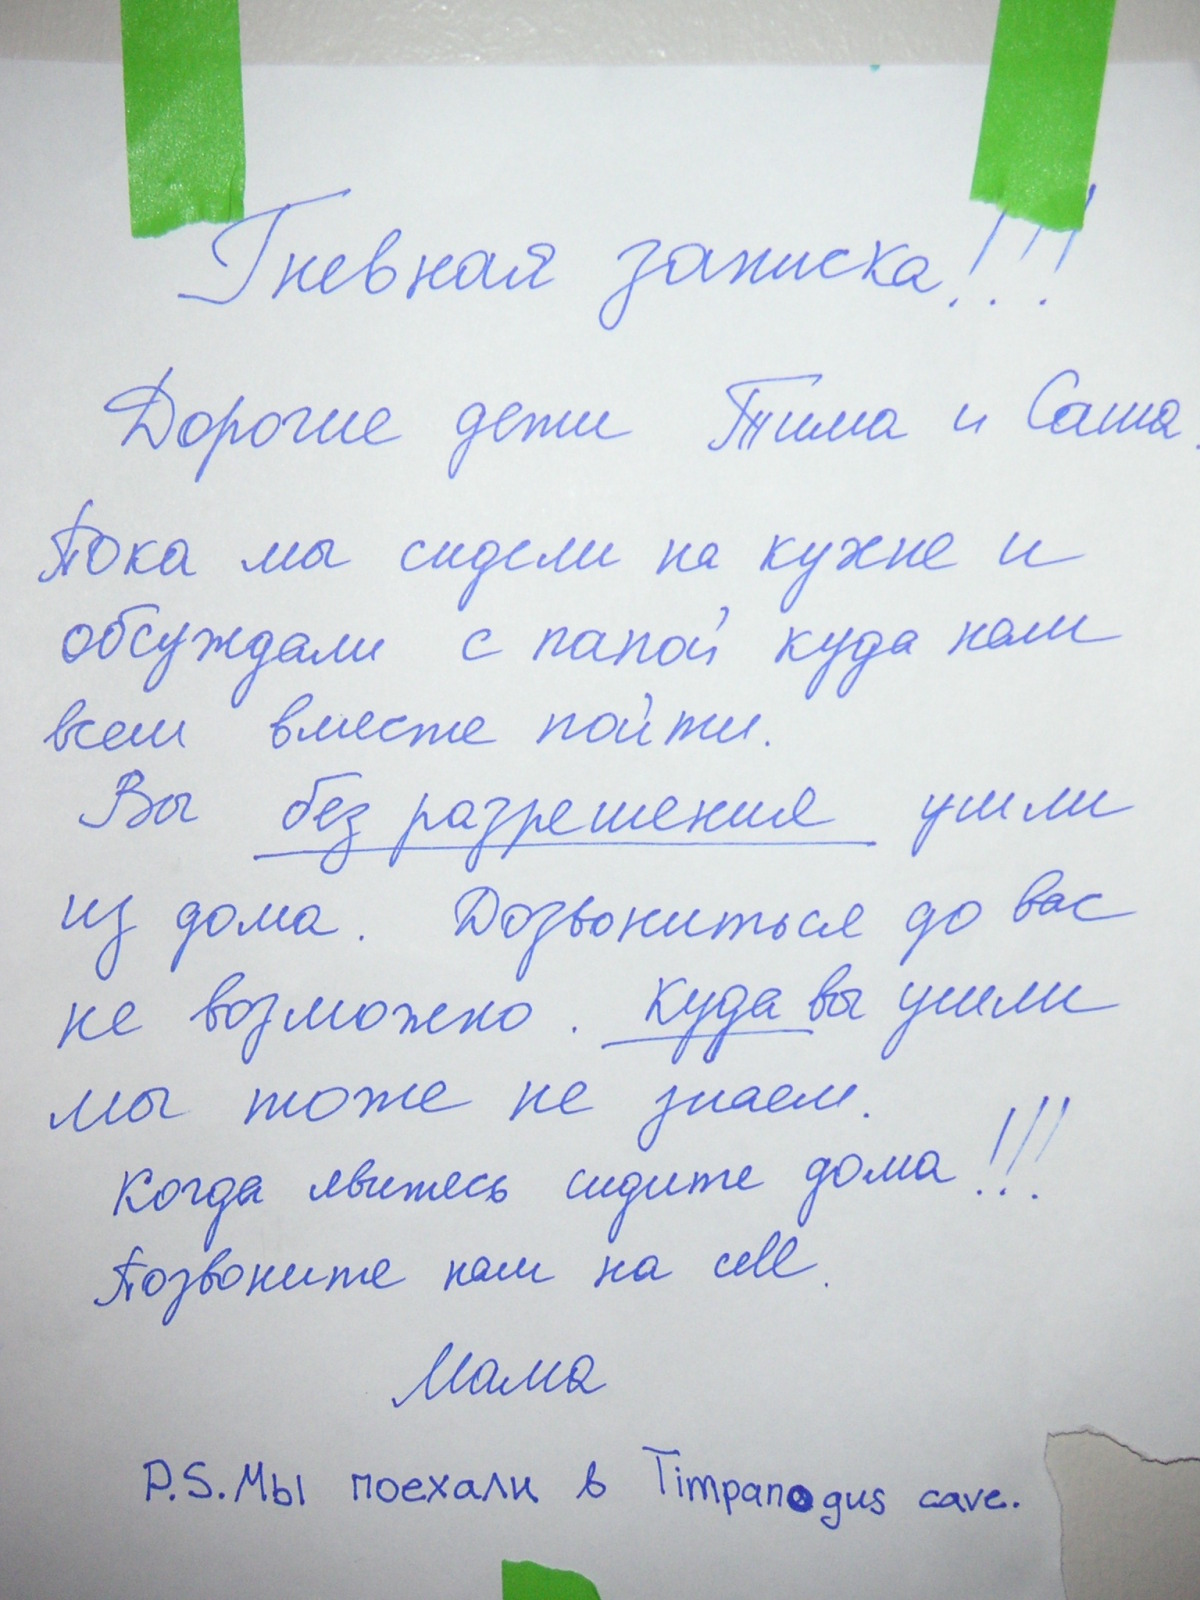 Гневная записка!!!
Дорогие дети Тима и Саша.
Пока мы сидели на кухне и
обсуждали с папой куда нам
всем вместе пойти.
Вы без разрешения ушли
из дома. Дозвониться до вас
не возможно. Куда вы ушли
мы тоже не знаем.
Когда явитесь сидите дома!!!
Позвоните нам на cell.
Мама
P.S. Мы поехали в Timpanogus cave.